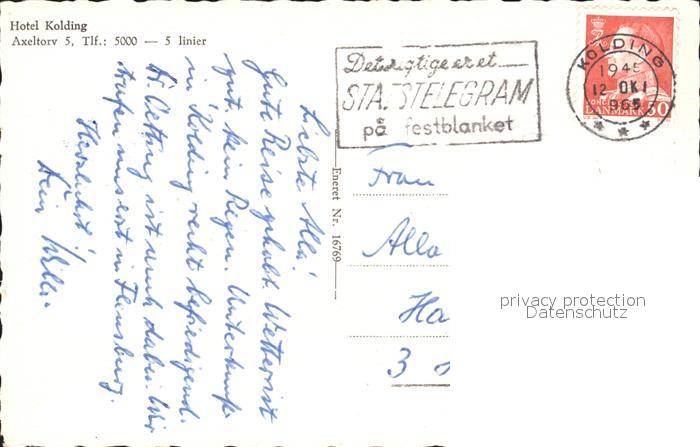 Hotel Kolding
Axeltorv 5, Tlf.: 5000 — 5 linier
Det rigtige er et
STATSTELEGRAM
på festblanket
KOLDING
1945
12 OKT
1965
DANMARK 50
Eneret Nr. 16769
Liebste Alla!
Gute Reise gehabt. Wetter ist
gut, kein Regen. Unterkunft
in Kolding recht befriedigend.
H. ist auch dabei. Wir
trafen uns erst in Flensburg.
Herzlichst
Dein Willi.
Frau
Alla
Ha
3
privacy protection
Datenschutz